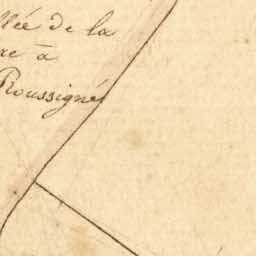 llée de la
re à
Roussigné